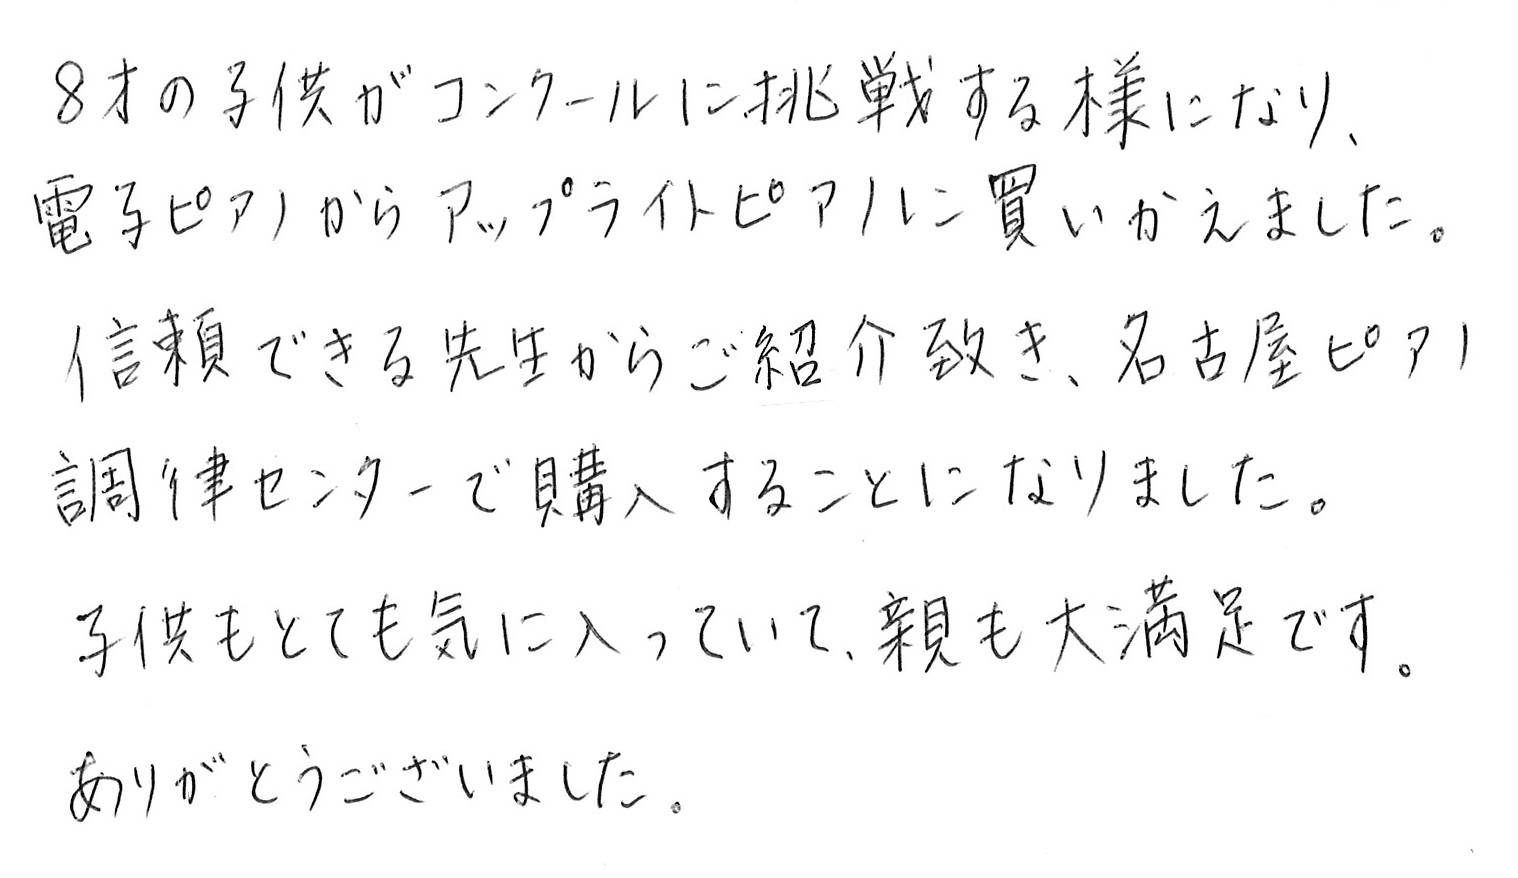 8才の子供がコンクールに挑戦する様になり、
電子ピアノからアップライトピアノに買いかえました。
信頼できる先生からご紹介致き、名古屋ピアノ
調律センターで購入することになりました。
子供もとても気に入っていて、親も大満足です。
ありがとうございました。